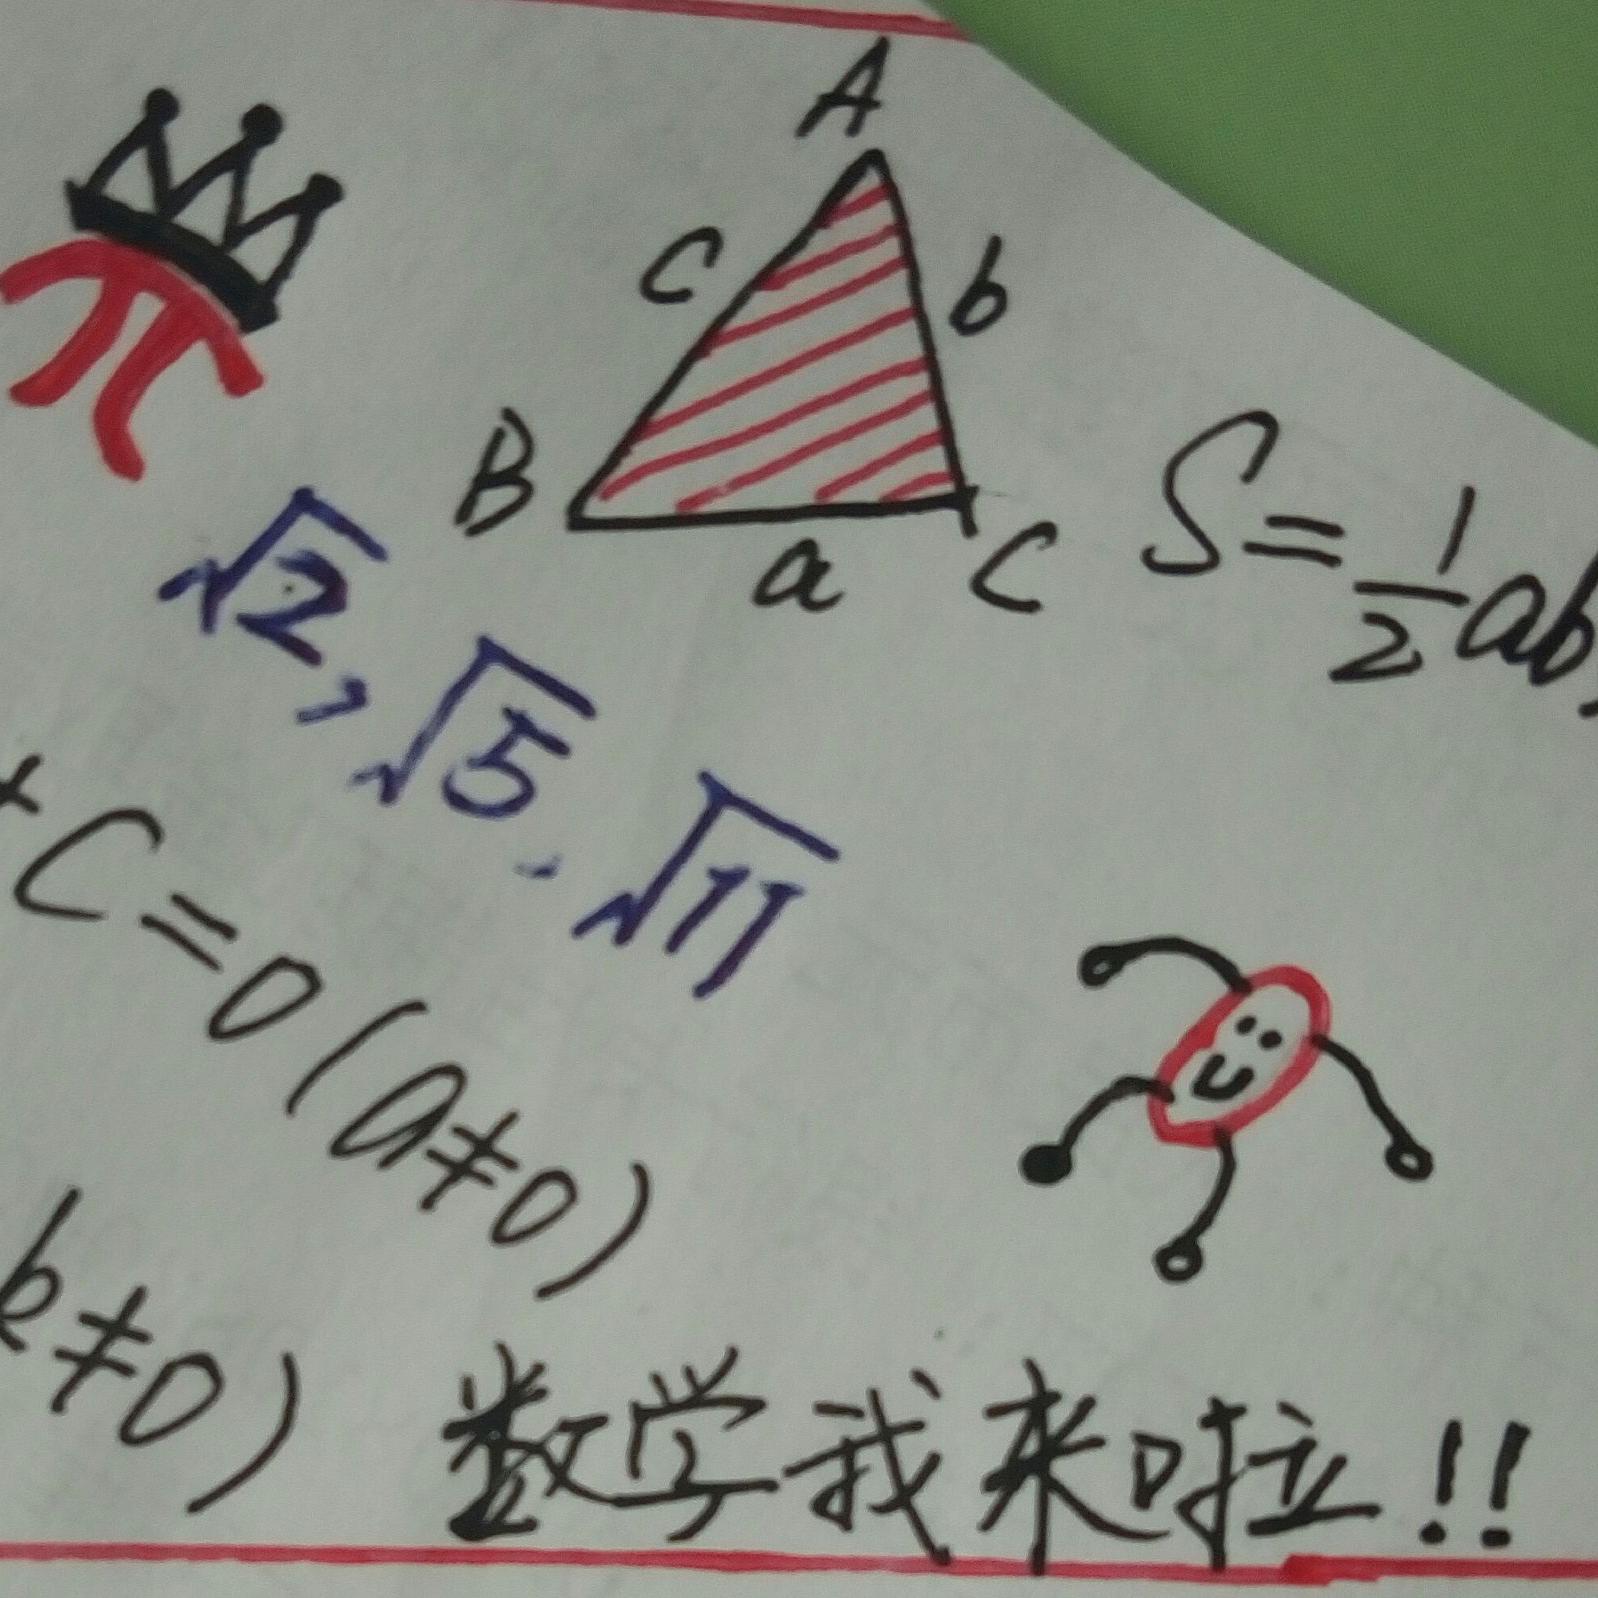 A
π
c b
B a C
S=½ab
√2, √5, √11
+C=0(a≠0)
k≠0)
数学我来啦!!